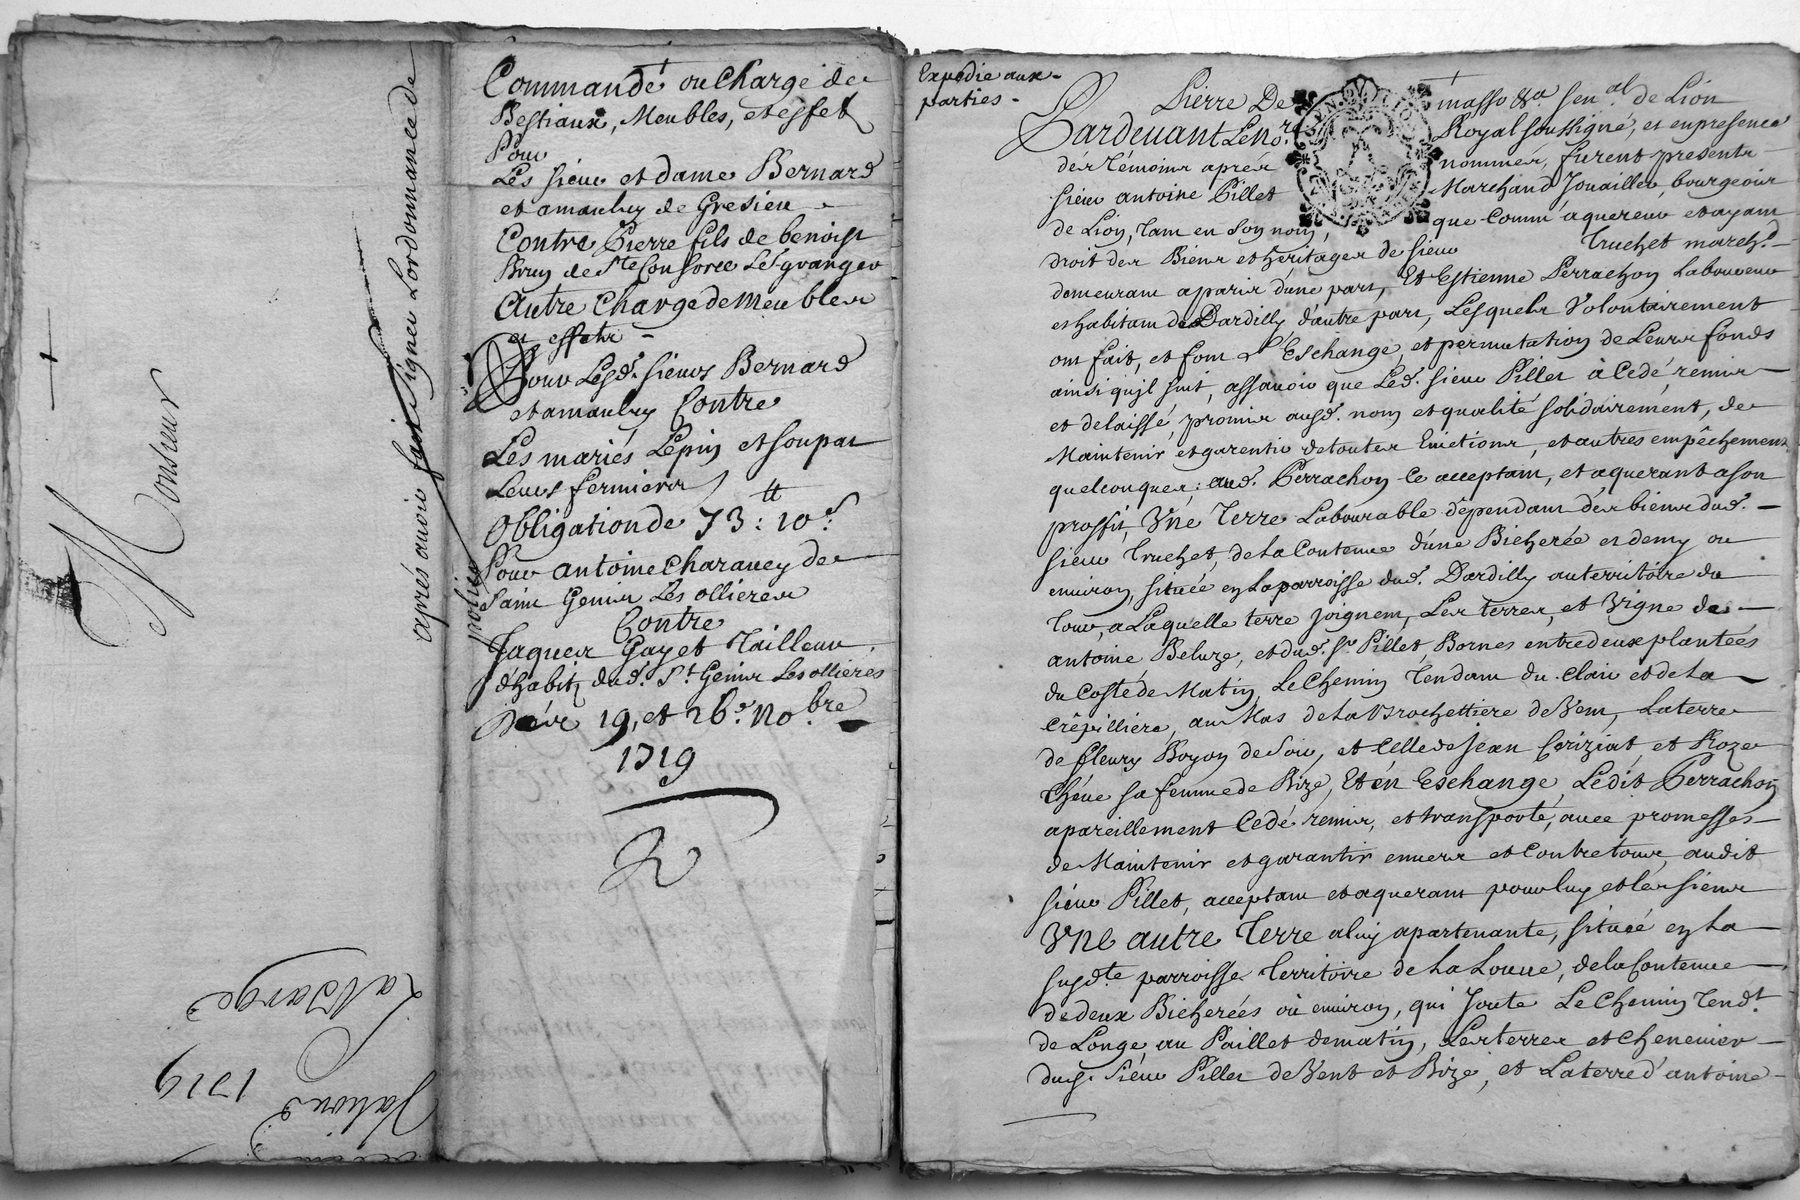 Monsieur
aprés avoir fait signer Lordonnance de
police
La Verge
1719
Commande ou Charge de
Bestiaux, Meubles, et effets
Pour
Les sieur et dame Bernard
et amaulry de Gresieu
Contre Pierre fils de benoist
Brun de Ste Consorce Les granger
Autre Charge de Meubles
et effets
Pour Lesd. sieurs Bernard
et amaulry Contre
Les mariés Lepin et soupat
Leurs fermiers
Obligation de 73: 10s.
Pour antoine Charavey de
Saint Genis Les ollieres
Contre
Jaques Gayet Tailleur
d'habitz dud. St. Genis Les ollieres
Des 19, et 26e. Nobre
1719
Expedie aux
parties.
Pierre De masso &a senal. de Lion
Pardevant Le nore. Royal soussigné, et en presence
des Témoins aprés nommés, furent presents
sieur antoine Pillet Marchand Jouaillier, bourgeois
de Lion, Tant en son nom, que Comm' aquereur et ayant
droit des Biens et heritages de sieur Truchet marchd.
demeurant a paris d'une part, Et Estienne Perrachon Laboureur
et habitant de Dardilly d'autre part, Lesquels Volontairement
ont fait, et font Eschange, et permutation de Leurs fonds
ainsi qu'il suit, assavoir que Led. sieur Pillet à Cedé, remis
et delaissé, promis ausd. nom et qualité solidairement, de
Maintenir et garentir de toutes Evictions, et autres empêchemens
quelconques; aud. Perrachon ce acceptant, et aquerant a son
proffit, Une Terre Labourable dépendant des biens dud.
sieur Truchet, de la Contenue d'une Bicherée et demy ou
environ, située en La parroisse dud. Dardilly au territoire du
Tour, a Laquelle terre joignent, Les terres, et Vigne de
antoine Beluze, et dud. Sr. Pillet, Bornes entre deux plantées
du Costé de Matin, Le Chemin Tendant du Clair et de La
Crêpilliere, au Mas de La Brochettiere de Vent, La terre
de fleury Boyon de Soir, et Celle de Jean Coriziat, et Roze
Chéne sa femme de Bize, Et én Eschange Ledit Perrachon
a pareillement Cedé remis, et transporté, avec promesses
de Maintenir et garantir envers et Contre tous, audit
sieur Pillet, acceptant et aquerant pour luy et les siens
Une autre Terre a luy apartenante, située en La
susdte parroisse Territoire de La Loüve, de la Contenue
de deux Bicherées ou environ, qui Joute Le Chemin Tendt.
de Longe au Paillet de matin, Les terres et Chenevier
dud. Sieur Pillet de Vent et Bize, et La terre d'antoine